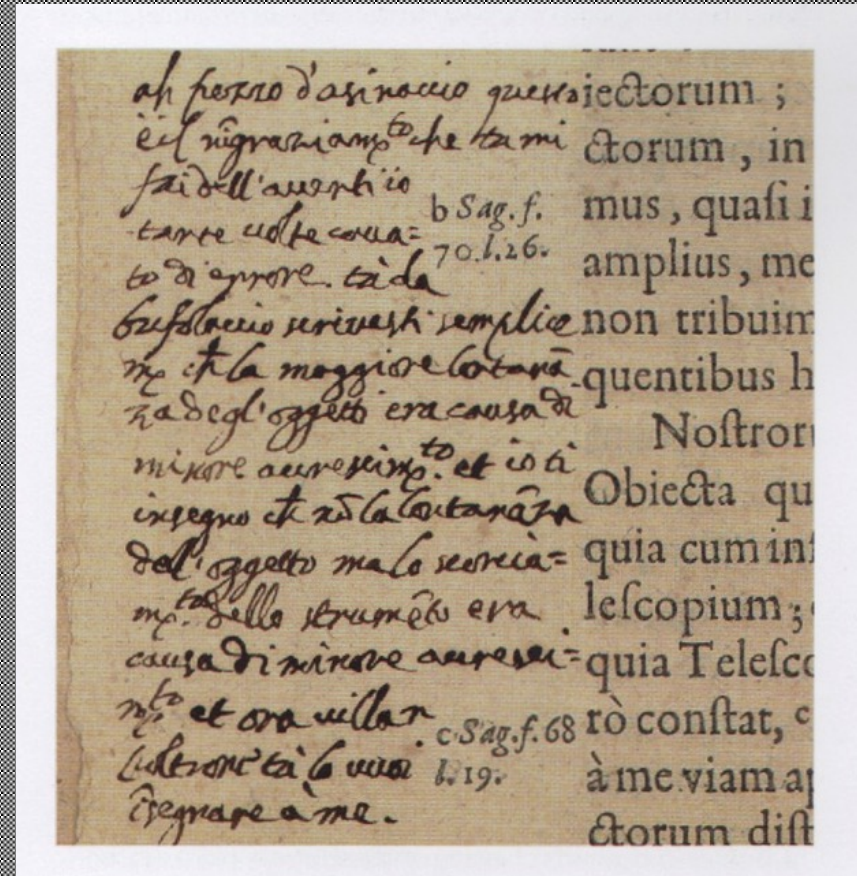 ah pezzo d'asinaccio questo
è il rĩgraziamᵗᵒ che tu mi
fai dell'auerti io
tante uolte coua=
to di errore. tù da
bufolaccio scriuesti semplice
mᵉ ch̃ la maggiore lõtanã
za degl'oggetti era causa di
minore accrescimᵗᵒ. et io ti
insegno ch̃ nõ la lõtanãza
dell'oggetto ma lo scorcia=
mᵗᵒ. dello strumẽto era
causa di minore accresci=
mᵗᵒ et ora uillan
poltrone tù lo uuoi
ĩsegnare à me.
b Sag. f.
70. l. 26.
c Sag. f. 68
l. 19.
iectorum ;
ctorum , in
mus , quaſi i
amplius , me
non tribuim
quentibus h
Noſtror
Obiecta qu
quia cum inſ
leſcopium ;
quia Teleſco
rò conſtat, c
à me viam ap
ctorum diſt